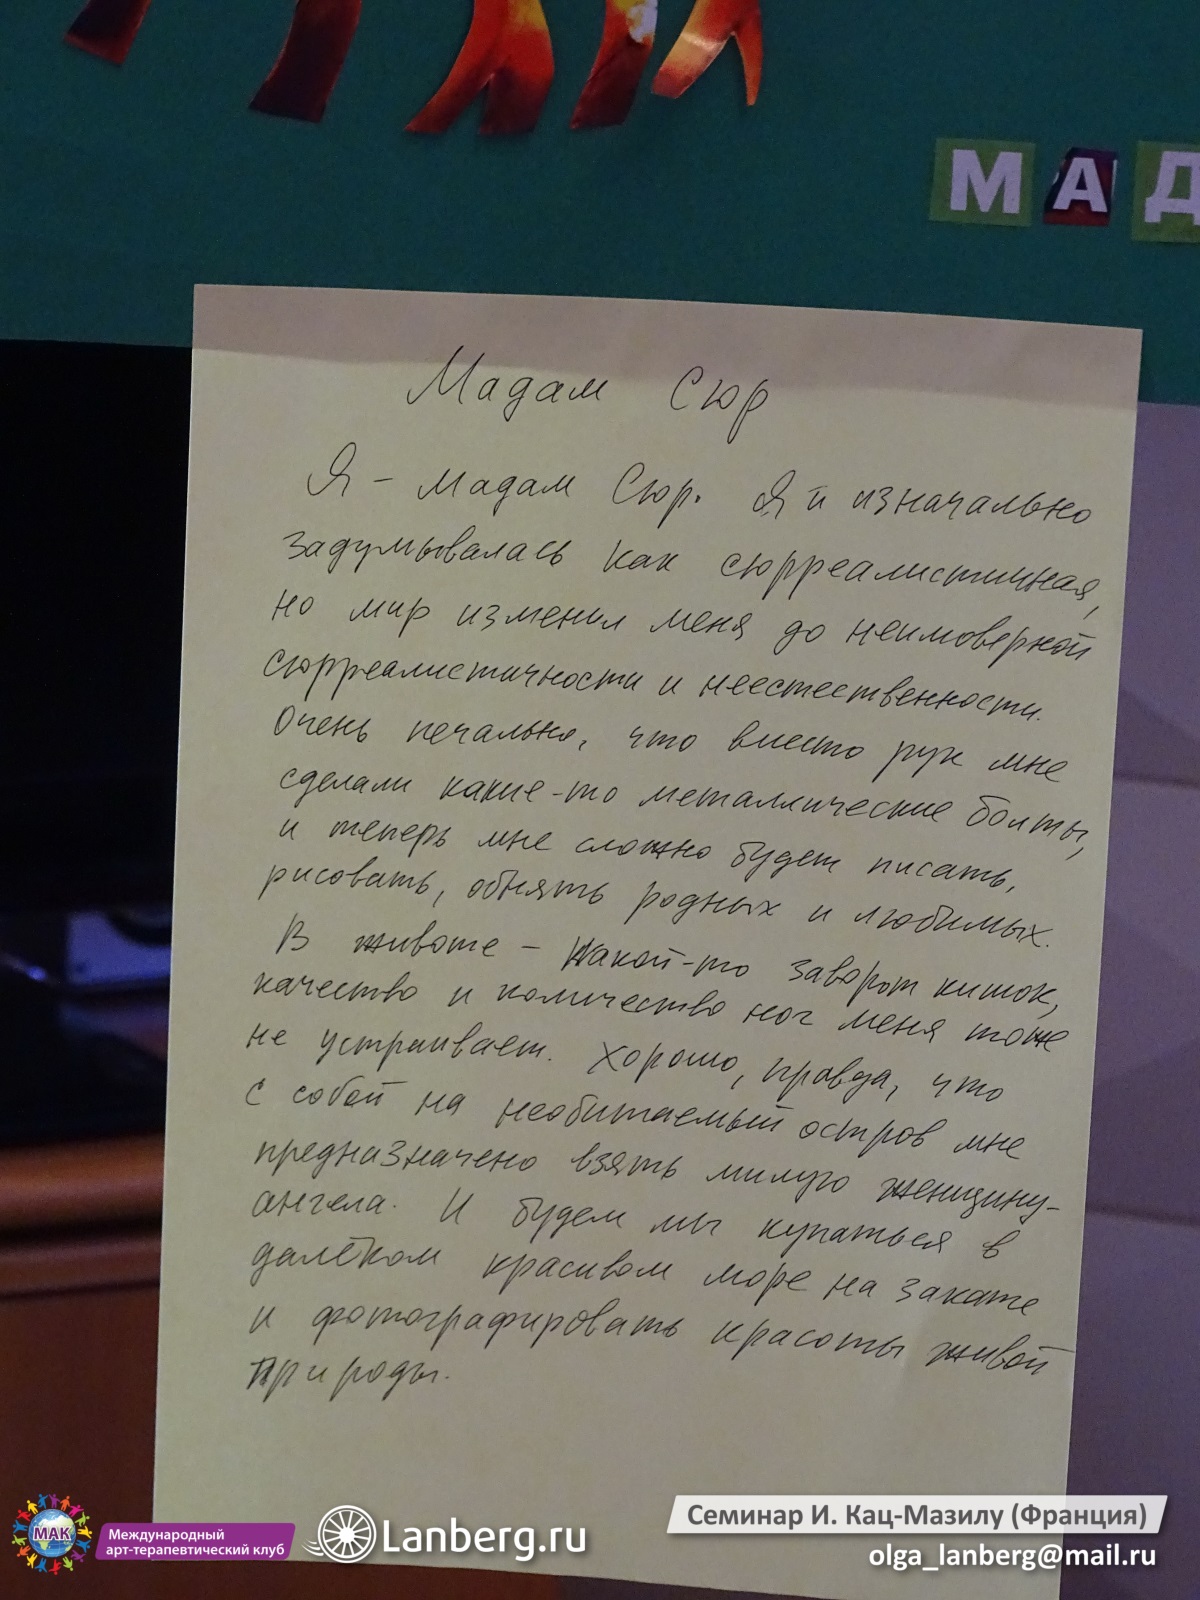 МАД
Мадам Сюр
Я - Мадам Сюр. Я и изначально
задумывалась как сюрреалистичная,
но мир изменил меня до неимоверной
сюрреалистичности и неестественности.
Очень печально, что вместо рук мне
сделали какие-то металлические болты,
и теперь мне сложно будет писать,
рисовать, обнять родных и любимых.
В животе - какой-то заворот кишок,
качество и количество ног меня тоже
не устраивает. Хорошо, правда, что
с собой на необитаемый остров мне
предназначено взять милую женщину-
ангела. И будем мы купаться в
далёком красивом море на закате
и фотографировать красоты живой
природы.
МАК
Международный
арт-терапевтический клуб
Lanberg.ru
Семинар И. Кац-Мазилу (Франция)
olga_lanberg@mail.ru